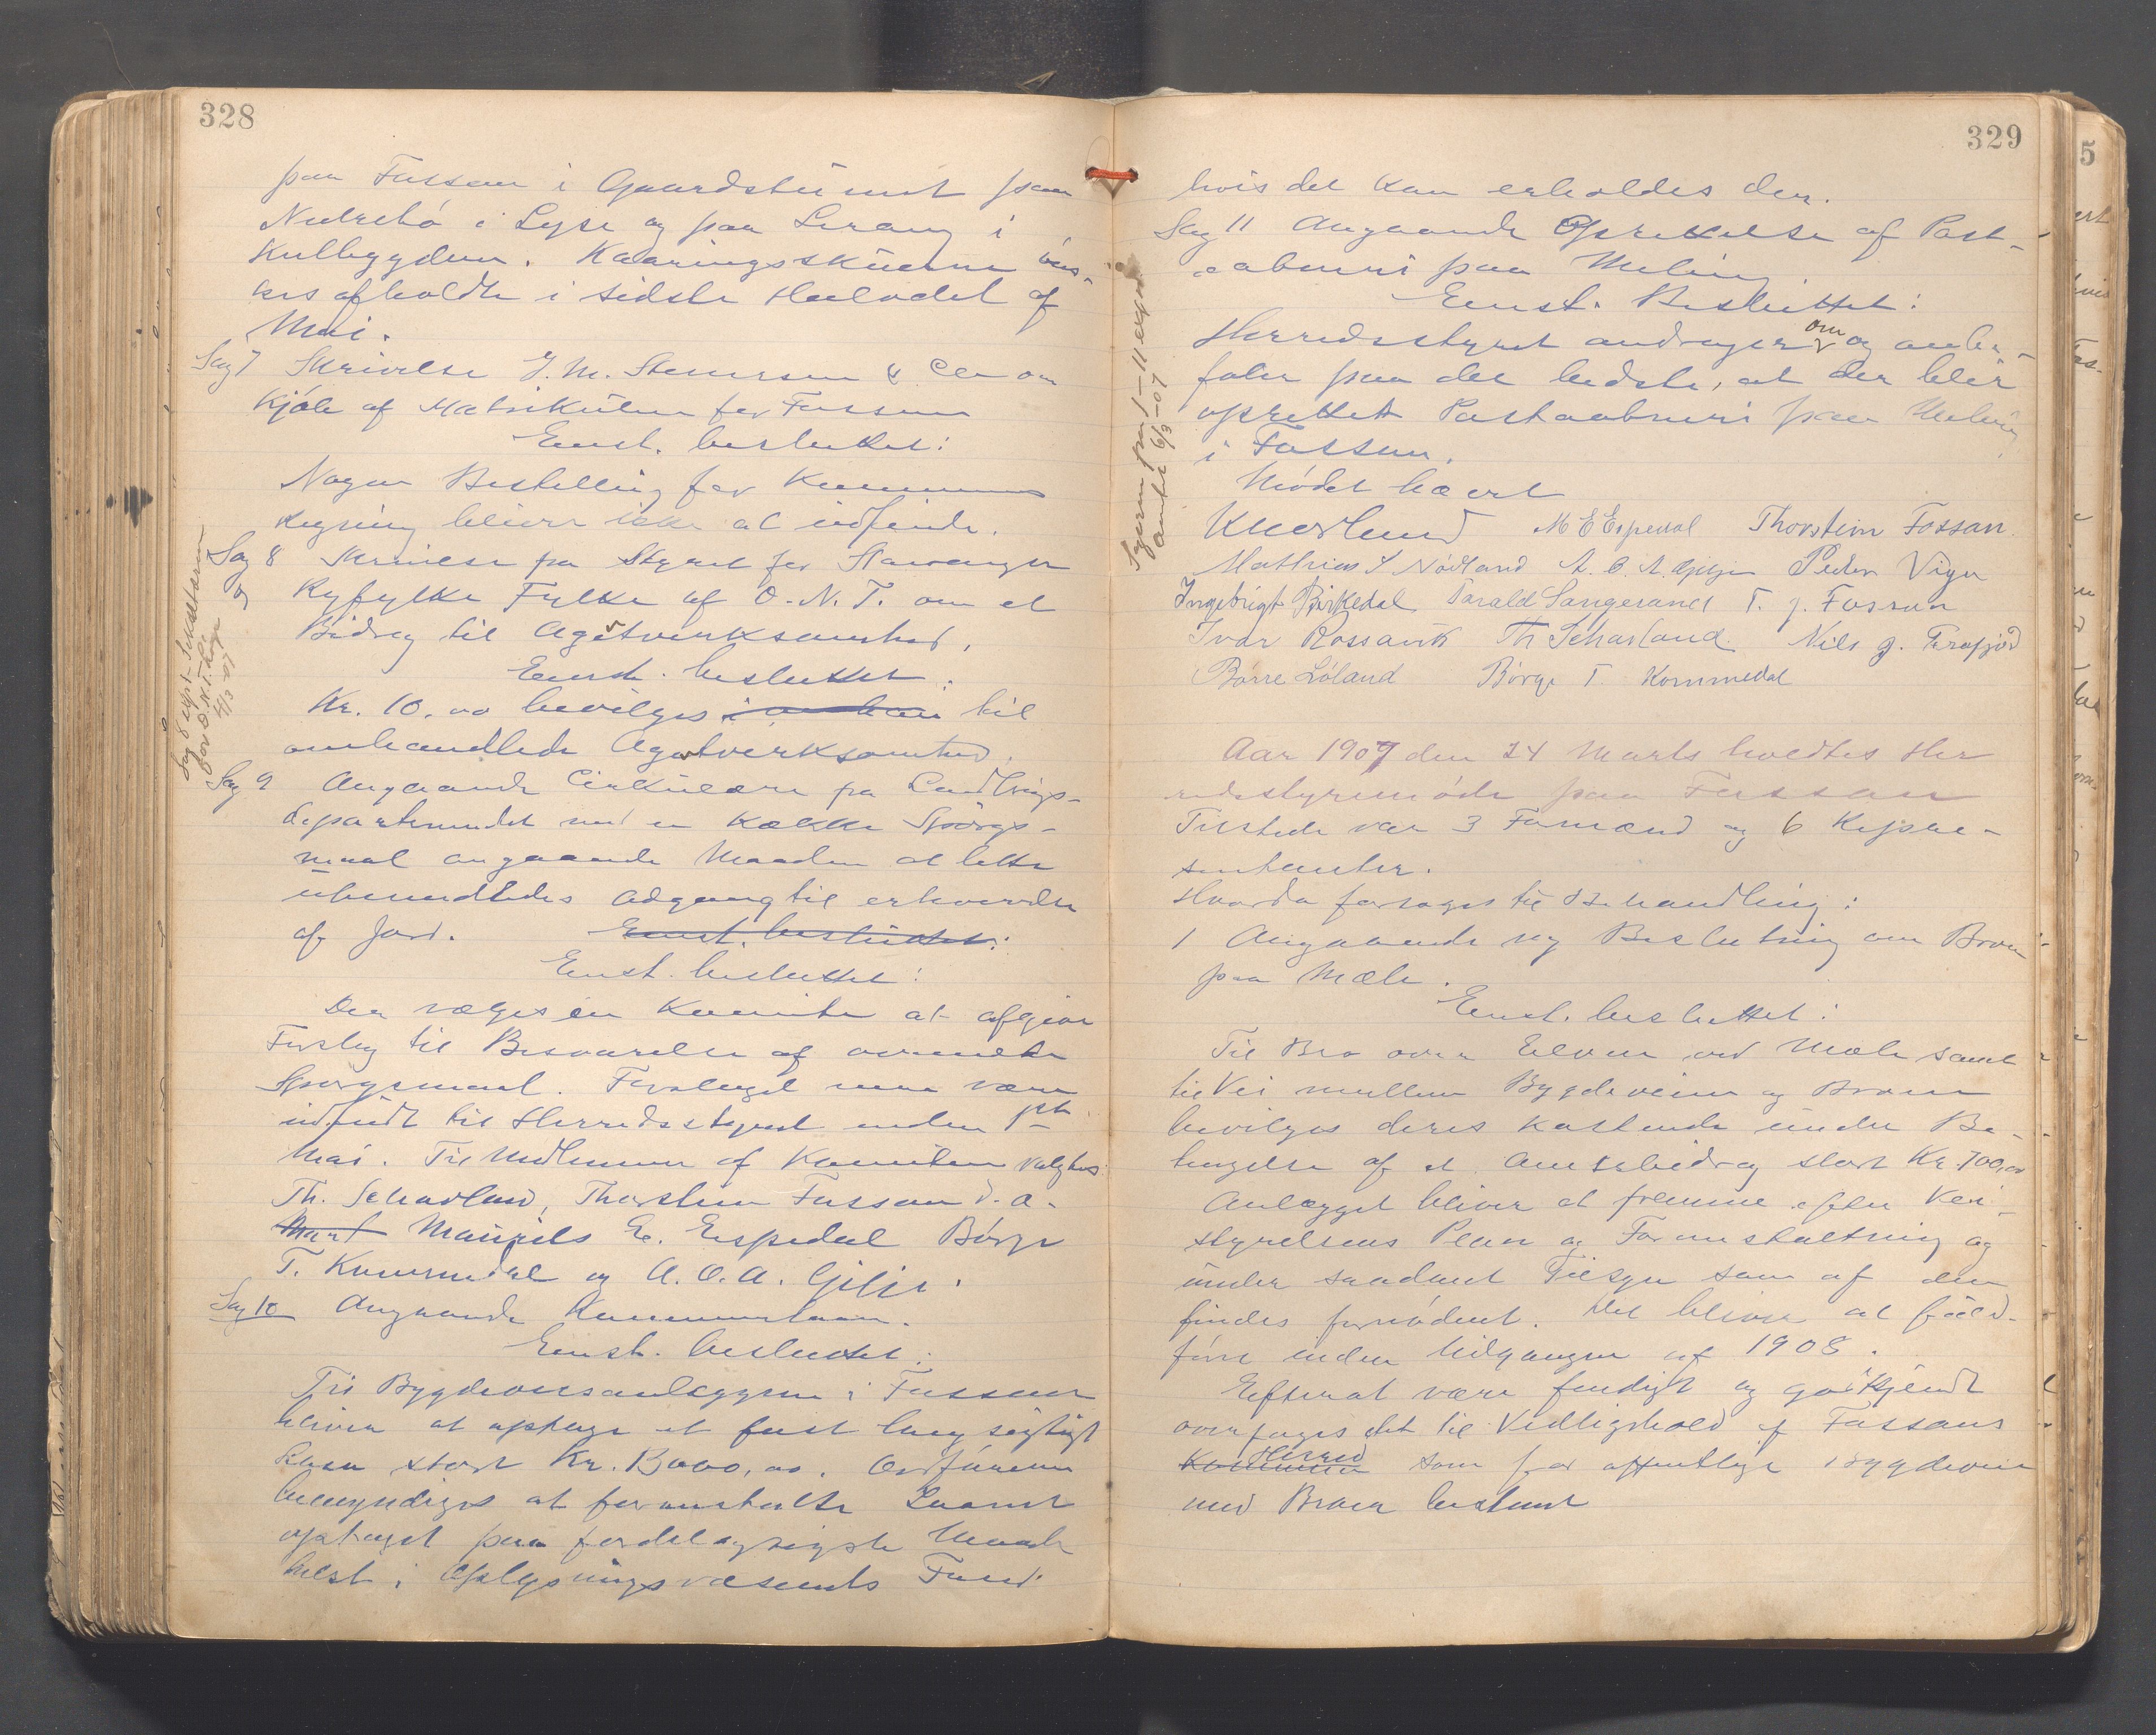 328
paa Fossan i Gaardstunet paa
Nedrebø i Lyse og paa Lerang i
Kulbygden. Kaaringsskuerne øns-
kes afholdte i sidste Halvdel af
Mai.
Sag 7 Skrivelse J. M. Stenersen & Co om
Kjøb af Matrikulen for Fossan
Enst. besluttet:
Nogen Bestilling for Kommunens
Regning bliver ikke at indsende.
Sag 8 Skrivelse fra Styret for Stavanger
og Ryfylke Fylke af O. N. T. om et
Bidrag til Agitverksomhed.
Enst. besluttet:
Kr. 10.00 bevilges til
omhandlede Agitverksomhed.
Sag 9 Angaaende Cirkulære fra Landbrugs-
departementet med en Række Spørgs-
maal angaaende Maaden at lette
ubemidledes Adgang til erhvervelse
af Jord. Enst. besluttet:
Enst. besluttet:
Der vælges en Komite at afgive
Forslag til Besvarelse af ovennævnte
Spørgsmaal. Forslaget maa være
indsendt til Herredsstyret inden 1ste
Mai. Til Medlemmer af Komiteen valgtes
Th. Scharland, Thorstein Fossan d. a.
Mart Mauritz E. Espedal Børge
T. Kommedal og A. O. A. Gilje.
Sag 10 Angaaende Kommunelaan.
Enst. besluttet:
Til Bygdeveisanlæggene i Fossan
bliver at optage et fast langsigtigt
Laan stort Kr. 13000,00. Ordføreren
bemyndiges at foranstalte Laanet
optaget paa fordelagtigste Maade
helst i Oplysningsvæsenets Fond
Sag 8 expt
for D.N.T. Lage
6/3-07
329
hvis det kan erholdes der.
Sag 11 Angaaende Oprettelse af Post-
aabneri paa Meling.
Enst. Besluttet:
Herredsstyret andrager om og anbe-
faler paa det bedste, at der blir
oprettet Postaabneri paa Meling
i Fossan.
Mødet hævet
M E Espedal Thorstein Fossan
Mathias S Nødland A. O. A. Gilje Peder Viger
Ingebrigt Birkedal Tarald Sangesand T. J. Fossan
Ivar Rossavik Th Scharland Nils J. Frafjord
Børre Løland Børge T. Kommedal
Aar 1907 den 24 Marts holdtes Her
redsstyremøde paa Fossan
Tilstede var 3 Formænd og 6 Repræ-
sentanter.
Hvorda foretoges til Behandling:
1 Angaaende ny Beslutning om Broen
paa Mæle.
Enst. besluttet:
Til Bro over Elven ved Mæle samt
til Vei mellem Bygdeveien og Broen
bevilges deres Kostende under Be-
tingelse af et Amtsbidrag stort Kr. 700,00
Anlægget bliver at fremme efter Vei-
styrelsens Plan og Foranstaltning og
under saadant Tilsyn som af den
findes fornødent. Det bliver at fuld-
føre inden Udgangen af 1908.
Efterat være færdigt og godkjendt
overtages det til Vedligehold af Fossans
Kommune Herred som for offentlige Bygdeveie
med Broer bestemt
Sagerne fra 1-11 exp
Amtet 6/3-07